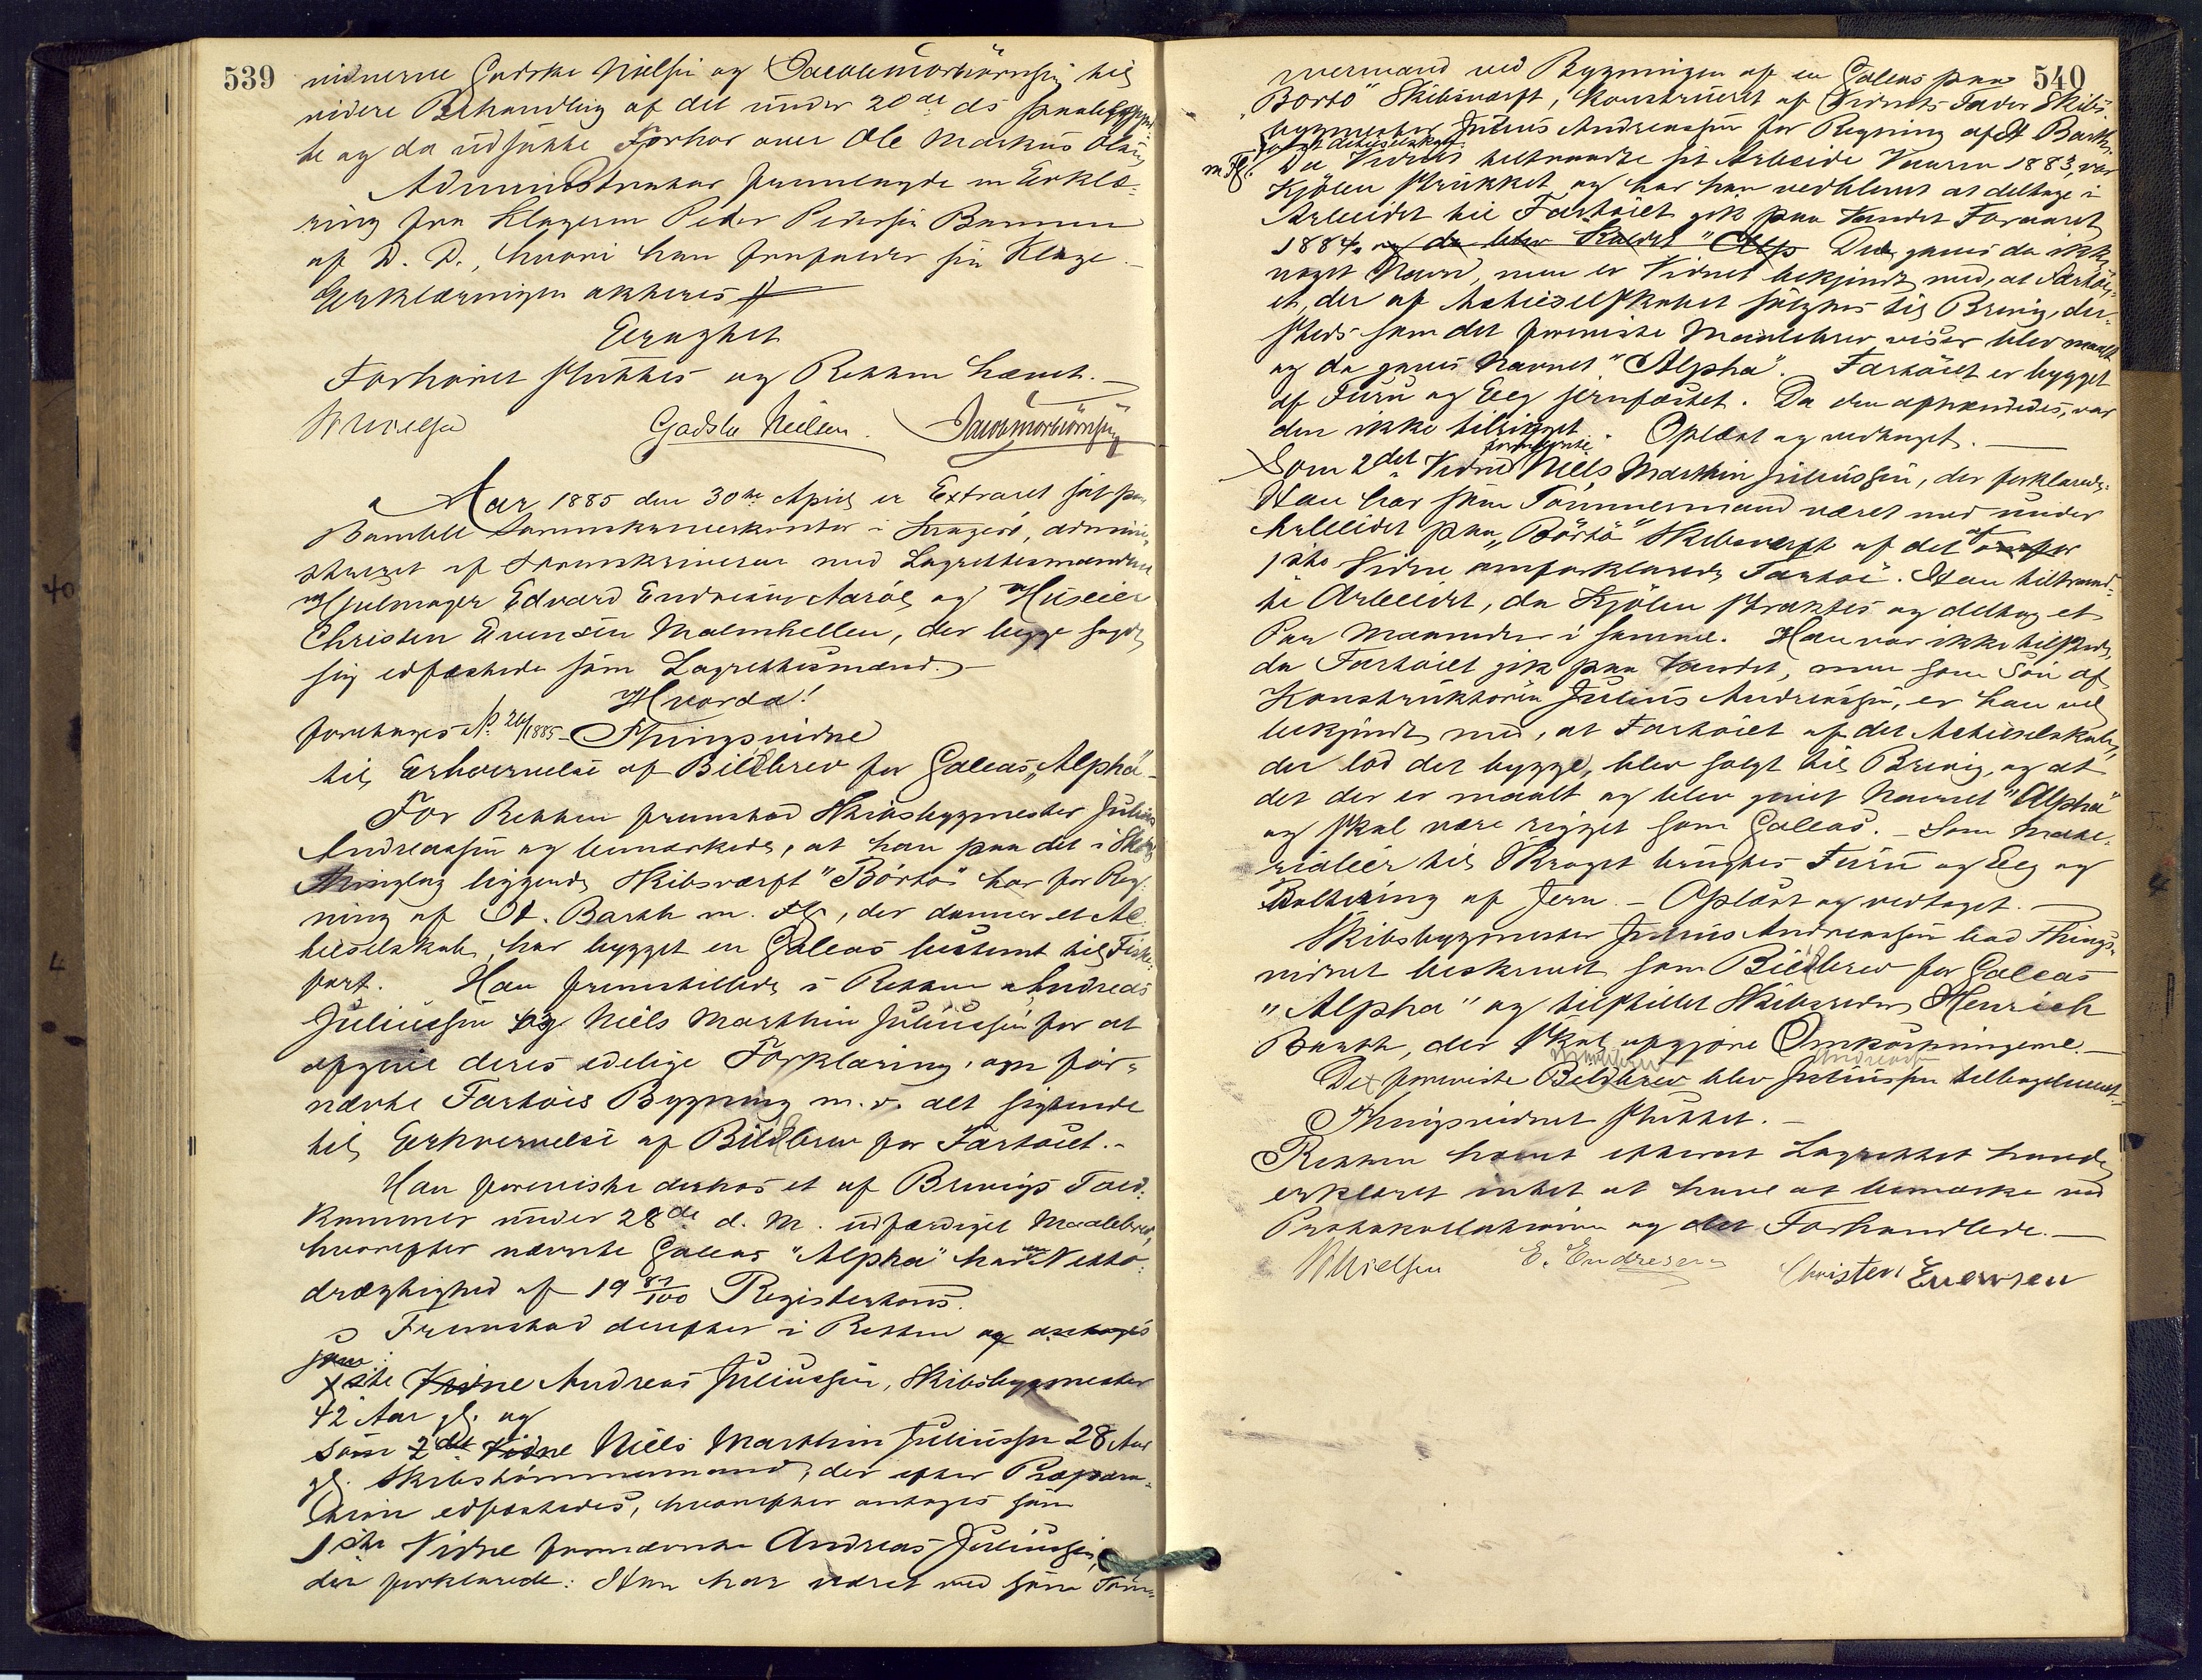 539
vidnerne Gadske Nielsen og Jacob Morbörnsen til
videre Behandling af det under 20de ds paabegynd-
te og da udsatte Forhør over Ole Markus Olsen
Administrator fremlagde en Erklæ-
ring fra Klageren Peder Pedersen
af D. D., hvori han frafalder sin Klage.
Erklæringen aktheres
Eragtet
Forhøret sluttes og Retten hævet.
Gadske Nielsen. Jacob Morbörnsen
Aar 1885 den 30te April er Extraret sat paa
Bamble Sorenskriverkontor i Kragerö, admini-
streret af Sorenskriveren med Lagrettesmændene
Hjulmager Edvard Endresen Aaröe og Huseier
Christen Evensen Malmhellen, der begge sagdes
sig edfæstede som Lagrettesmænd.
Hvorda!
foretages No 26/1885 Thingsvidne
til Erhvervelse af Bilbrev for Galeas "Alpha"
For Retten fremstod Skibsbygmester Julius
Andreassen og bemærkede, at han paa det i
Thinglag liggende Skibsværft "Börtö" har for Reg-
ning af H. Barth m. Fl., der danner et Ac-
tieselskab, har bygget en Galeas bestemt til Fiske-
fart. Han fremstillede i Retten Andreas
Juliussen og Niels Marthin Juliussen for at
afgive deres edelige Forklaring om før-
nævnte Fartöis Bygning m. v. alt sigtende
til Erhvervelse af Bilbrev for Fartöiet.
Han foreviste derhos et af Brevigs Told-
kammer under 28de d. M. udfærdiget Maalebrev,
hvorefter nævnte Galeas "Alpha" har en Netto-
drægtighed af 19 /100 Registertons.
Fremstod derefter i Retten og antoges
som
1ste Vidne Andreas Juliussen, Skibsbygmester
42 Aar gl. og
som 2det Vidne Niels Marthin Juliussen 28 Aar
gl. Skibstömmermand, der efter Præpara-
tion edfæstedes, hvorefter antages som
1ste Vidne fornævnte Andreas Juliussen,
der forklarede: Han har været med som Töm-
540
mermand ved Bygningen af en Galeas paa
"Börtö" Skibsværft, konstrueret af Vidnets Fader Skibs-
bygmester Julius Andreassen for Regning af H Barth
m. Fl. Actieselskab. Da Vidnet tiltraadte sit Arbeide Vaaren 1883, var
Kjölen strukket og har han vedblevet at deltage i
Arbeidet til Fartöiet gik paa Vandet Foraaret
1884. og da blev kaldet "Alp Det gaves da ikke
noget Navn, men er Vidnet bekjendt med, at Fartöi-
et, der af Actieselskabet solgtes til Brevig, der-
steds som det foreviste Maalebrev viser blev maalt
og da gaves Navnet "Alpha". Fartöiet er bygget
af Furu og Eeg jernfæstet. Da den afhændedes, var
den ikke tilrigget. Oplæst og vedtaget.
Som 2det Vidne fornævnte Niels Marthin Juliussen, der forklarede:
Han har som Tömmermand været med under
Arbeidet paa "Börtö" Skibsværft af det af
1ste Vidne omforklarede Fartöi. Han tiltraad-
te Arbeidet, da Kjölen straktes og deltog et
Par Maaneder i samme. Han var ikke tilstede,
da Fartöiet gik paa Vandet, men som Sön af
Konstruktören Julius Andreassen, er han vel
bekjendt med, at Fartöiet af det Actieselskab,
der lod det bygge, blev solgt til Brevig, og at
det der er maalt og blev givet Navnet "Alpha"
og skal være rigget som Galeas. - Som Mate-
rialier til Skroget brugtes Furu og Eeg og
Boltering af Jern. - Oplæst og vedtaget.
Skibsbygmester Julius Andreassen bad Things-
vidnet beskrevet som Bilbrev for Galeas
"Alpha" og tilstillet Skibsreder Henrich
Barth, der skal opgjöre Omkostningerne.
Det foreviste Bilbrev Maalebrev blev Juliussen Andreassen tilbageleveret.
Thingsvidnet sluttet.
Retten hævet efterat Lagrettet havde
erklæret intet at have at bemærke ved
Protokollationen og det Forhandlede.
E. Endresen Christen Evensen